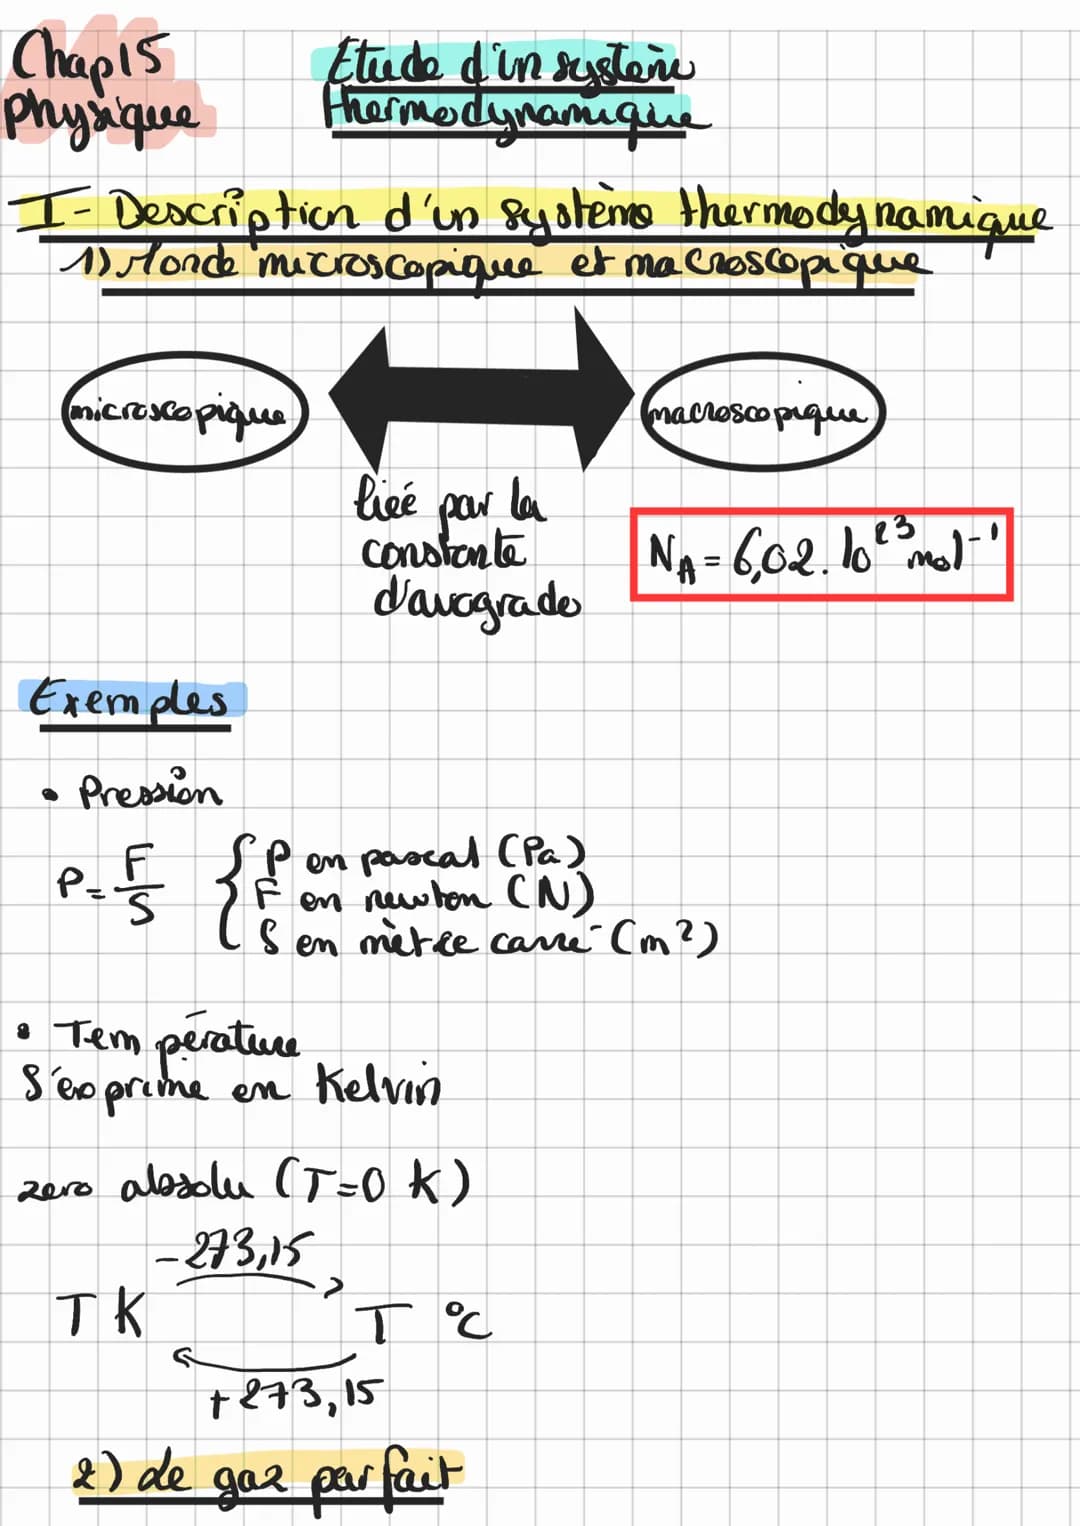 Chap15
Physique
Etude d'un système
thermodynamique
I- Description d'un système thermodynamique
1) Monde microscopique et macroscopique
microscopique
macroscopique
lieé par la
constante
d'avogrado
N_A = 6,02.10²³ mol⁻¹
Exemples
• Pression
P = F/S { P en pascal (Pa)
F en newton (N)
S en mètre carré (m²)
• Température
S'exprime en Kelvin
zero absolu (T=0 K)
-273,15
T K
T °C
+273,15
2) de gaz parfait